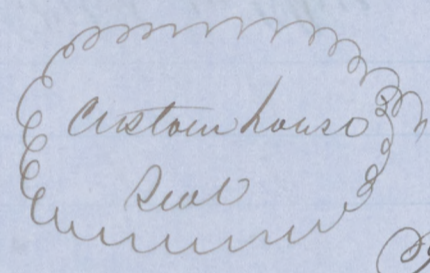 Custom house
Seal